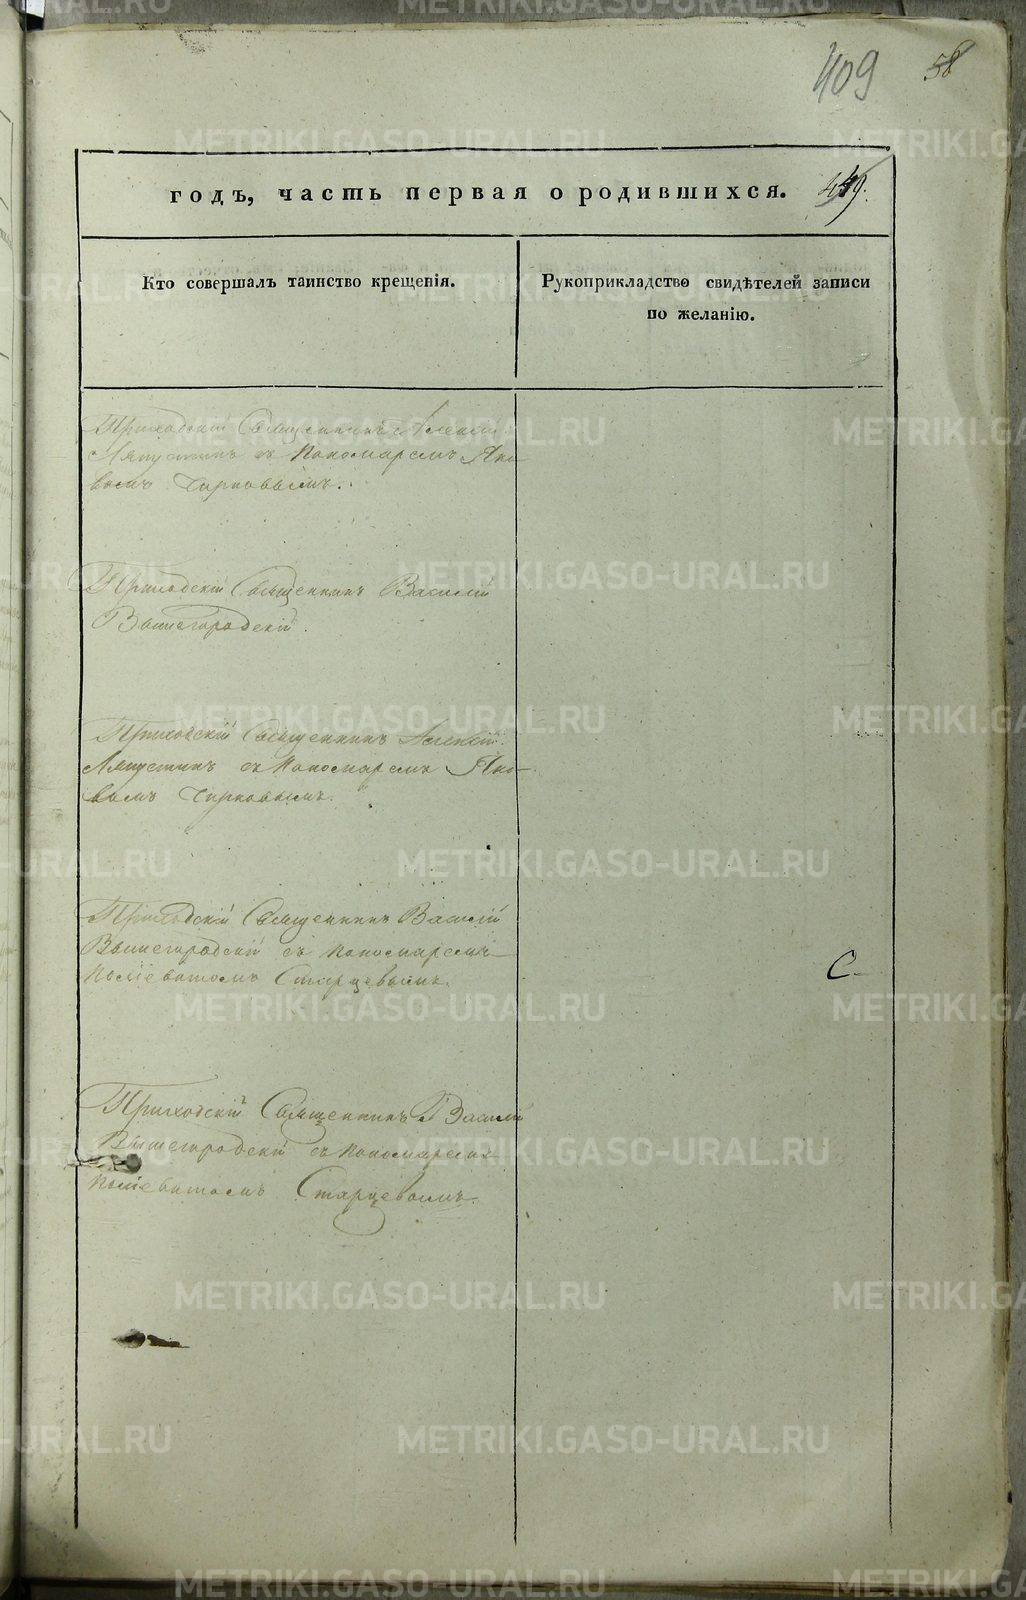 409 58
годъ, часть первая о родившихся. 449.
Кто совершалъ таинство крещенія.
Рукоприкладство свидѣтелей записи
по желанію.
Приходскій Священникъ Алексій
Ляпустинъ съ Пономаремъ Яко
вомъ Чирковымъ.
Приходскій Священникъ Василій
Вышегородскій.
Приходскій Священникъ Алексій
Ляпустинъ съ Пономаремъ Яко-
вомъ Чирковымъ.
Приходскій Священникъ Василій
Вышегородскій съ Пономаремъ
Старцевымъ.
С
Приходскій Священникъ Василій
Вышегородскій съ Пономаремъ
Старцевымъ.
METRIKI.GASO-URAL.RU